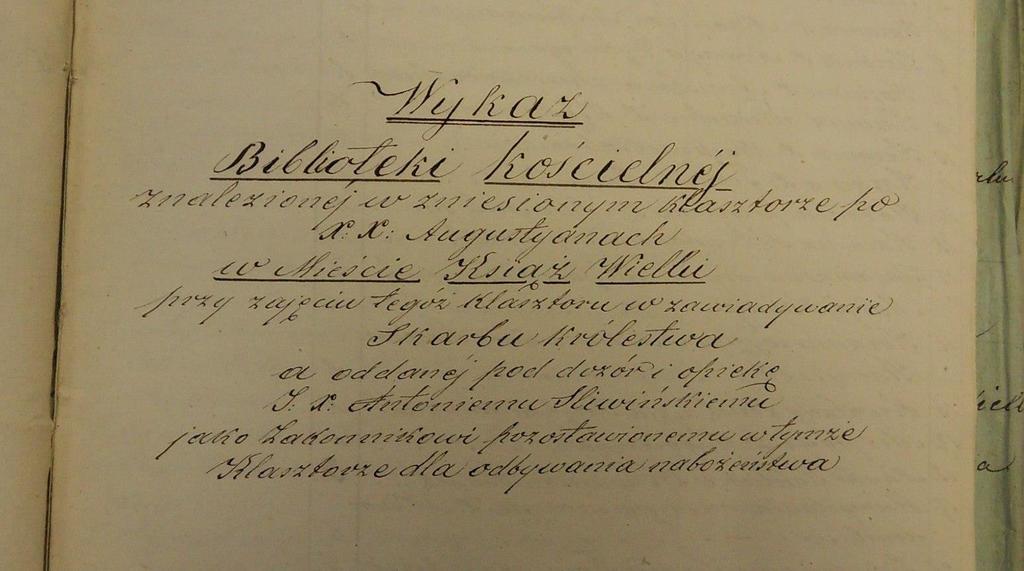 Wykaz
Biblioteki kościelnéj
znalezionéj w zniesionym klasztorze po
X: X: Augustyanach
w Mieście Książ Wielki
przy zajęciu tegóż klasztoru w zawiadywanie
Skarbu królestwa
a oddanéj pod dozór i opiekę
J: X: Antoniemu Śliwińskiemu
jako Zakonnikowi pozostawionemu w tymże
Klasztorze dla odbywania nabożeństwa